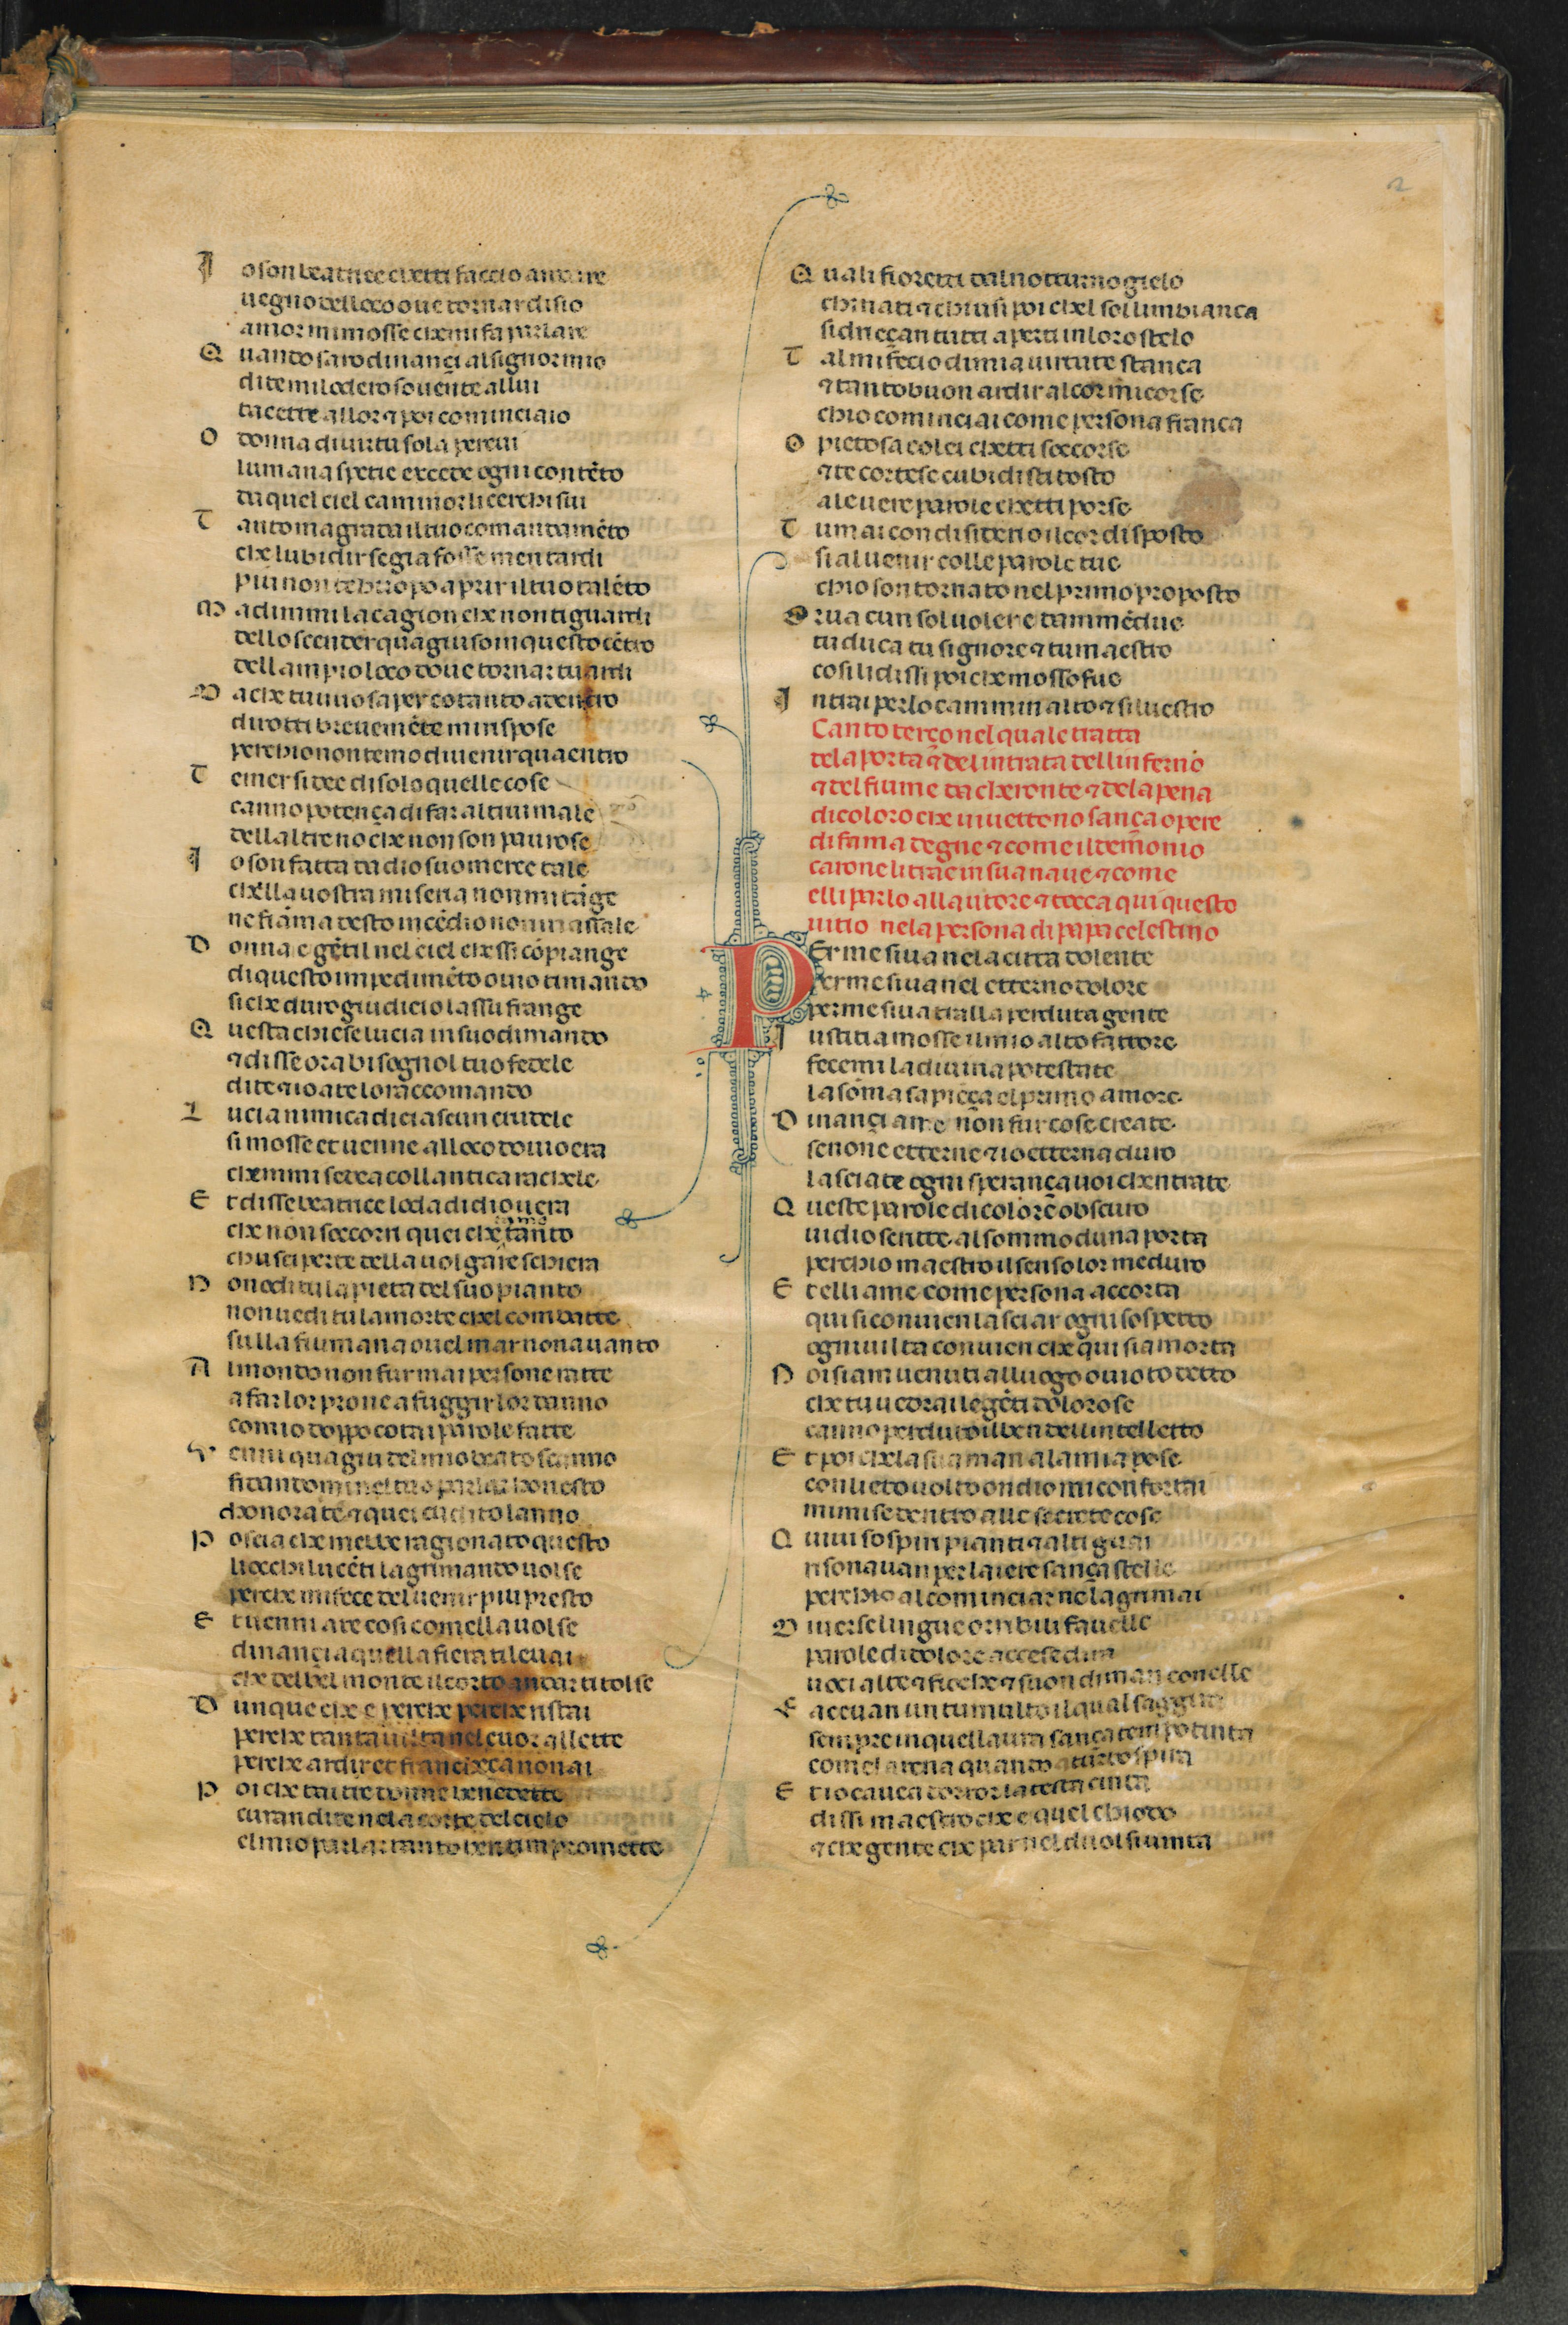 2
I o son beatrice chetti faccio andare
uegno delloco oue tornar disio
amor mi mosse che mi fa parlare
Q uando saro dinançi al signor mio
di te mi lodero souente allui
tacette allora ⁊ poi cominciaio
O donna di uirtu sola percui
lumana spetie excede ogni contẽto
da quel ciel cammor li cerchi sui
T anto magrada il tuo comandamẽto
che lubidir se gia fosse men tardi
piu non te huopo aprir il tuo talẽto
M a dimmi la cagion che non ti guardi
dello scender qua giuso in questo cẽtro
dellampio loco doue tornar tu ardi
D a che tu uuo saper cotanto adentro
dirotti breuemẽte mi rispose
perchio non temo di uenir qua entro
T emer si dee di solo quelle cose
canno potença di far altrui male
dellaltre no che non son paurose
I o son fatta da dio suo merce tale
chella uostra miseria non mi tãge
ne fiãma desto incẽdio non massale
D onna e gẽtil nel ciel chessi cõpiange
di questo impedimẽto ouio ti mando
si che duro giudicio lassu frange
Q uesta chiese lucia in suo dimando
⁊ disse or a bisogno l tuo fedele
di te ⁊ io a te lo raccomando
L ucia nimica di ciascun crudele
si mosse et uenne alloco douio era
che mmi sedea collantica rachele
E t disse beatrice loda di dio uera
che non soccorri quei che tamo tanto
chusci per te della uolgare schiera
N on odi tu la pieta del suo pianto
non uedi tu la morte chel combatte
sulla fiumana ouel mar non a uanto
A l mondo non fur mai persone ratte
a far lor pro ne a fuggir lor danno
comio doppo cotai parole fatte
V enni qua giu del mio beato scanno
fidandomi nel tuo parlar honesto
chonora te ⁊ quei chudito lanno
P oscia che mebbe ragionato questo
li occhi lucẽti lagrimando uolse
perche mi fece del uenir piu presto
E t uenni a te cosi comella uolse
dinançi a quella fiera ti leuai
che del bel monte il corto andar ti tolse
D unque che e perche perche ristai
perche tanta uilta nel cuor allette
perche ardir et francheçça non ai
P oi che tai tre donne benedette
curan di te nela corte del cielo
el mio parlar tanto ben tim promette
Q uali fioretti dal notturno gielo
chinati ⁊ chiusi poi chel sol limbianca
si driççan tutti aperti in loro stelo
T al mi fecio di mia uirtute stanca
⁊ tanto buon ardir al cor mi corse
chio cominciai come persona franca
O pietosa colei chetti soccorse
⁊ te cortese cubidisti tosto
ale uere parole chetti porse
T u mai con disiderio il cor disposto
si al uenir colle parole tue
chio son tornato nel primo proposto
O r ua cun sol uolere dammẽdue
tu duca tu signore ⁊ tu maestro
cosi li dissi poi che mosso fue
I ntrai per lo cammin alto ⁊ siluestro
Canto terço nel quale tratta
dela porta ⁊ del intrata dellinferno
⁊ del fiume dacheronte ⁊ dela pena
di coloro che uiuettono sança opere
di fama degne ⁊ come il demonio
carone li trae in sua naue ⁊ come
elli parlo allautore ⁊ tocca qui questo
uitio nela persona di papa celestino
PEr me si ua nela citta dolente
per me si ua nel etterno dolore
per me si ua tralla perduta gente
I ustitia mosse il mio alto fattore
fecemi la diuina potestate
la sõma sapiẽça el primo amore
D inançi a me non fur cose create
se none etterne ⁊ io etterna duro
lasciate ogni sperança uoi chentrate
Q ueste parole di colore obscuro
uidio scritte al sommo duna porta
perchio maestro il senso lor me duro
E t elli a me come persona accorta
qui si conuien lasciar ogni sospetto
ogni uilta conuien che qui sia morta
N oi siam uenuti al luogo ouio to detto
che tu uedrai le gẽti dolorose
canno perduto il ben dellintelletto
E t poi che la sua man ala mia pose
con lieto uolto ondio mi confortai
mi mise dentro alle secrete cose
Q uiui sospiri pianti ⁊ alti guai
risonauan per laiere sança stelle
perchio al cominciar ne lagrimai
D iuerse lingue orribili fauelle
parole di dolore accese dira
uoci alte ⁊ fioche ⁊ suon di man conelle
F aceuan un tumulto il qual saggira
sempre in quellaura sança tempo tinta
come larena quando a turbo spira
E t io cauea dorror la testa cinta
dissi maestro che e quel chiodo
⁊ che gente che par nel duol si uinta